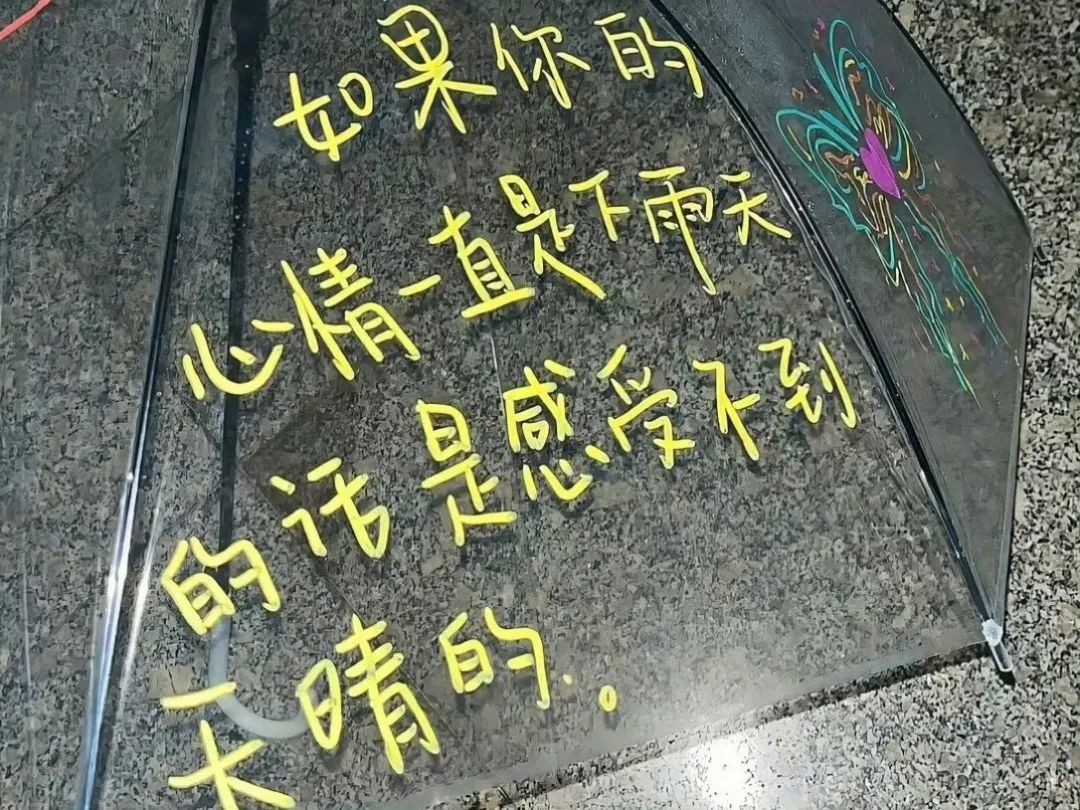 如果你的
心情一直是下雨天
的话是感受不到
天晴的.。